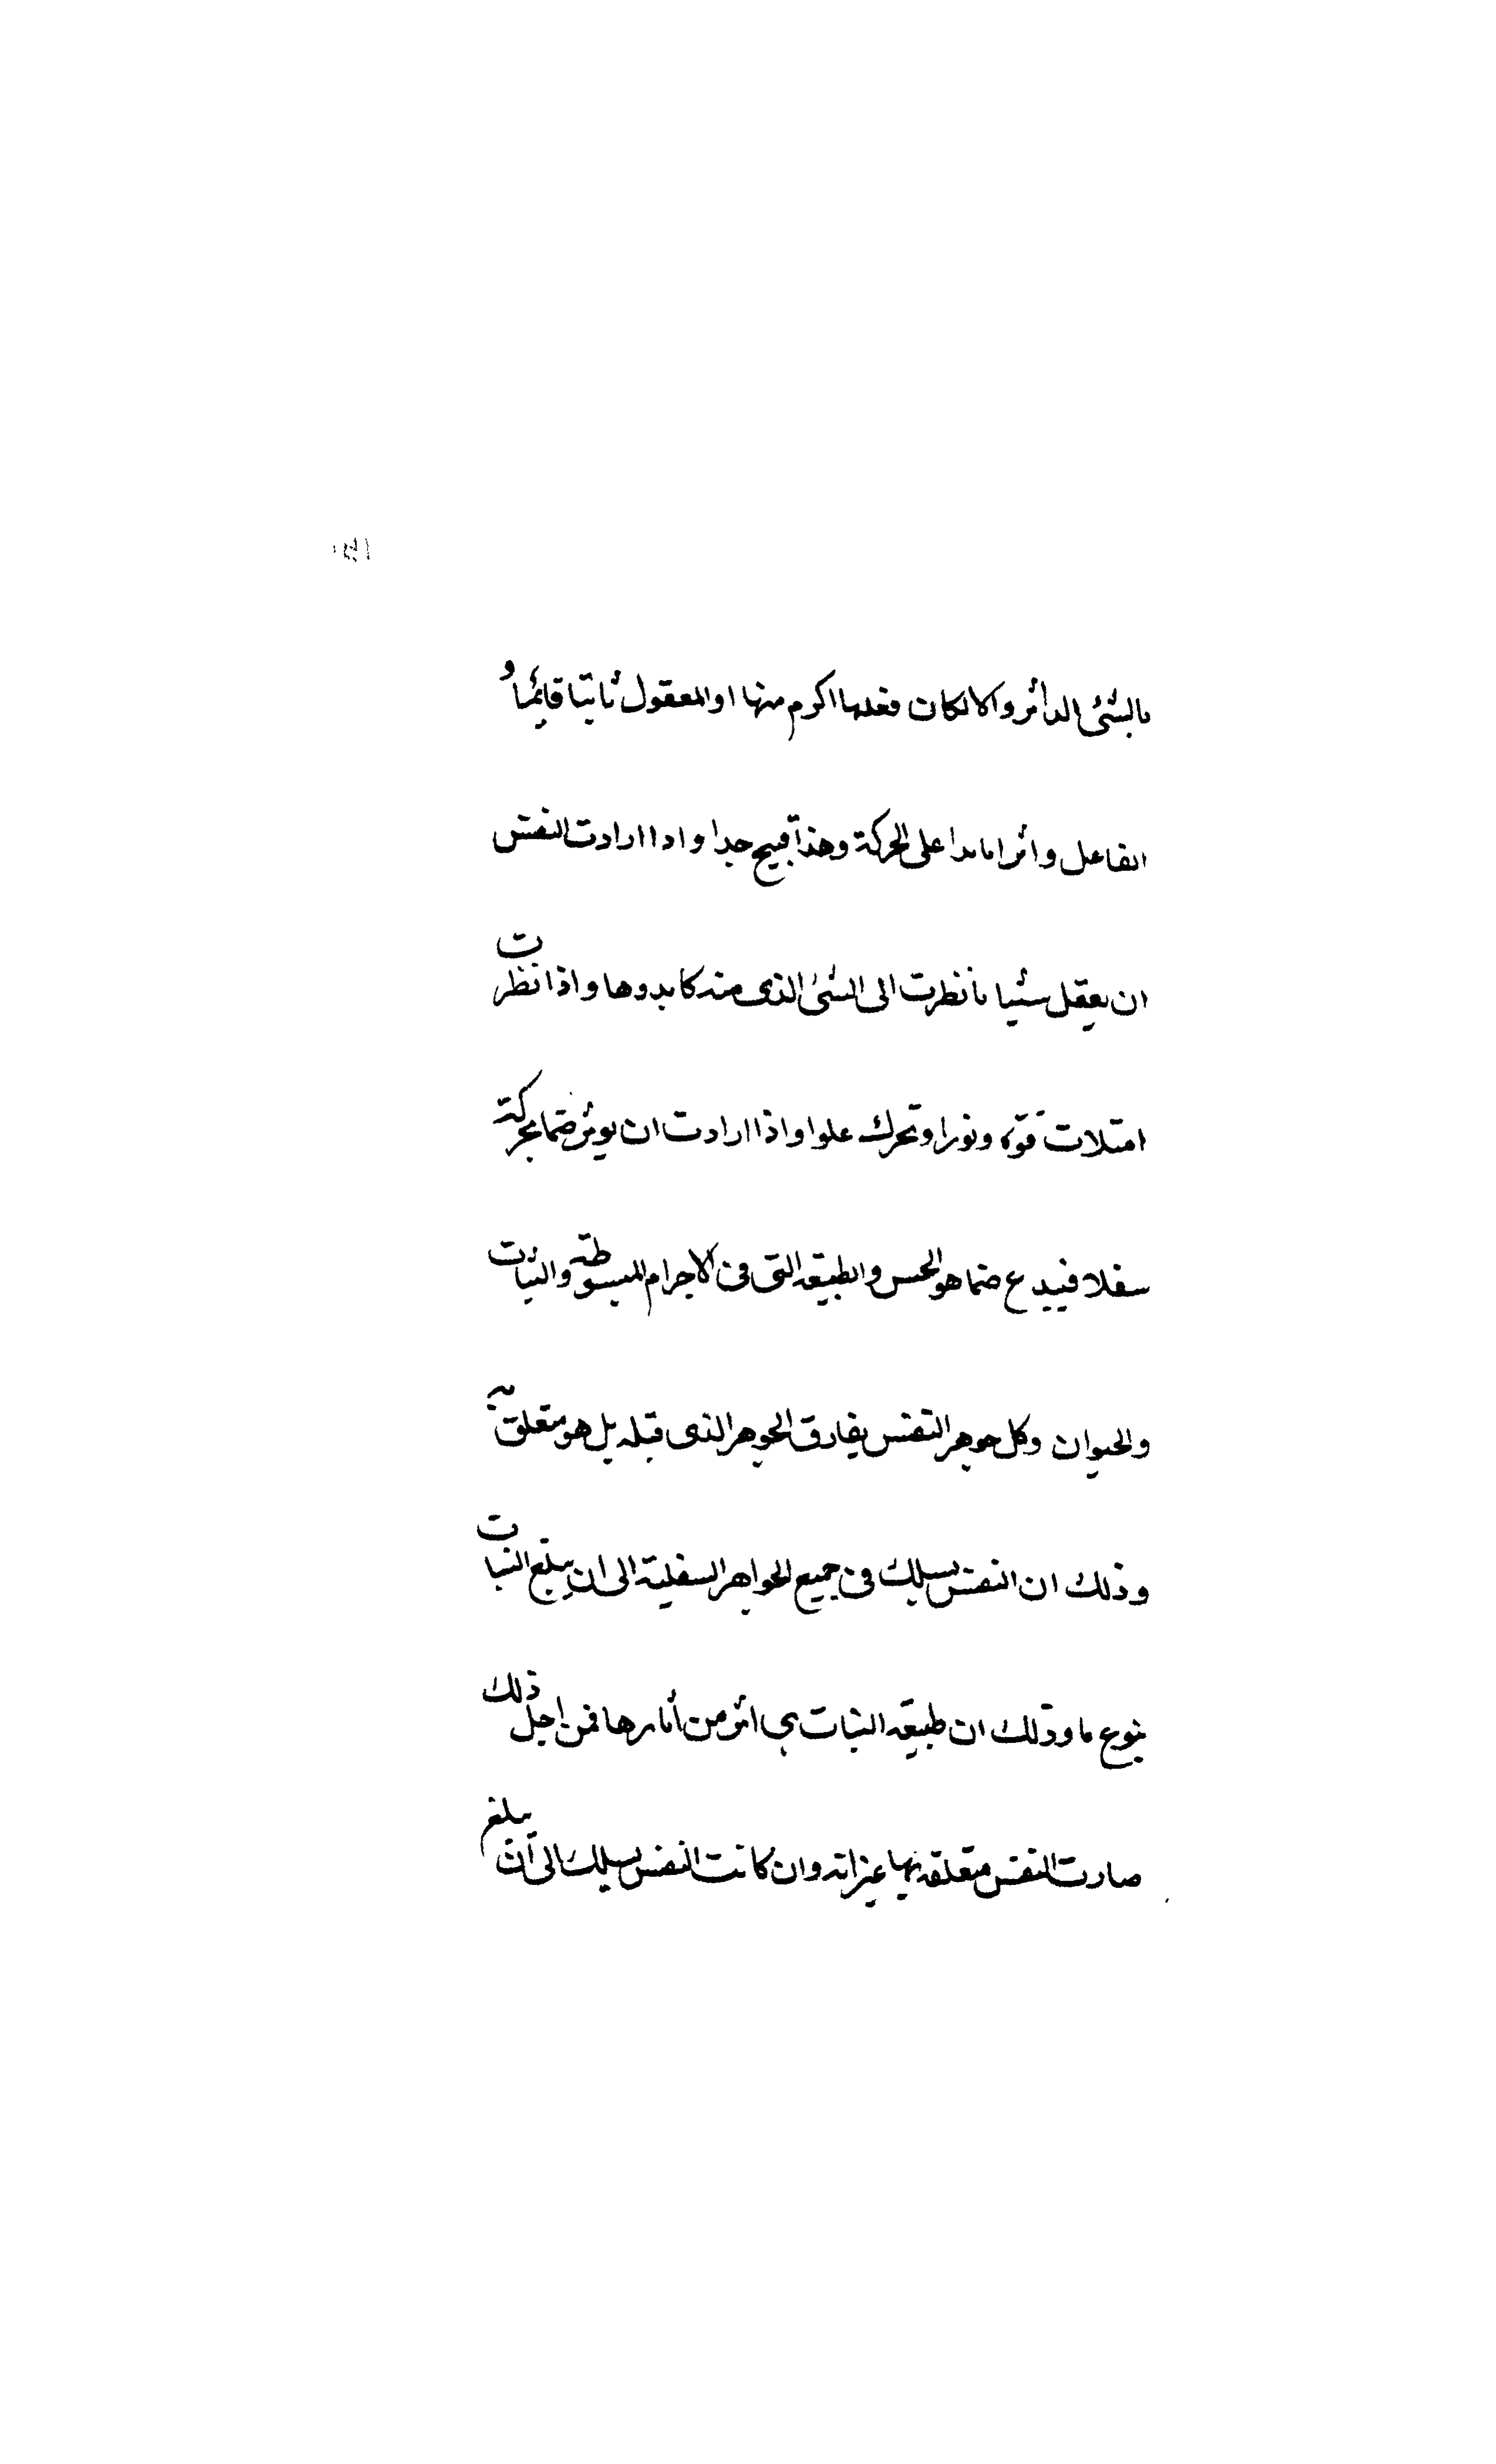 بالشئ الداثر والا لكان فعلها اكرم منها او المعقول ثابتا قايما و
الفاعل داثرا بايدا على الحركة وهذا قبيح جدا واذا ارادت النفس
ان يعقل شيا نظرت الى الشئ الذى منه كا بدوها واذا نظرت
امتلات قوة ونورا وتحرك علوا واذا ارادت ان يوثر صنما بحركة
سفلا فيبدع صنما هو الحس والطبيعه التى فى الاجرام المبسوطة والنبات
والحيوان وكل جوهر النفس يفارق الجوهر الذى قبله بل هو متعلق به
وذلك ان النفس يسلك فى جميع الجواهر السفلية الى ان يبلغ النبات
بنوع ما وذلك ان طبيعه النبات هى اثر من اثارها فمن اجل ذلك
صارت النفس متعلقه بها غير انه وان كانت النفس يسلك الى ان يبلغ